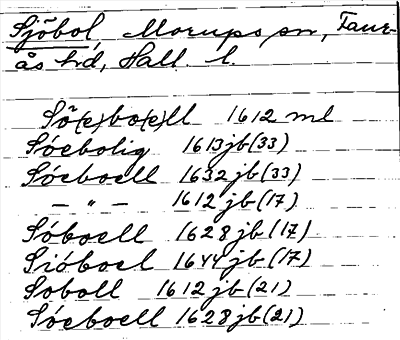 Sjöbol, Morups sn, Faur-
ås hd, Hall. l.
Sö(e)bo(e)ll 1612 ml
Söebolig 1613 jb (33)
Sóeboell 1632 jb (33)
— " — 1612 jb (17)
Sóboell 1628 jb (17)
Sióboel 1644 jb (17)
Soboll 1612 jb (21)
Sóeboell 1628 jb (21)